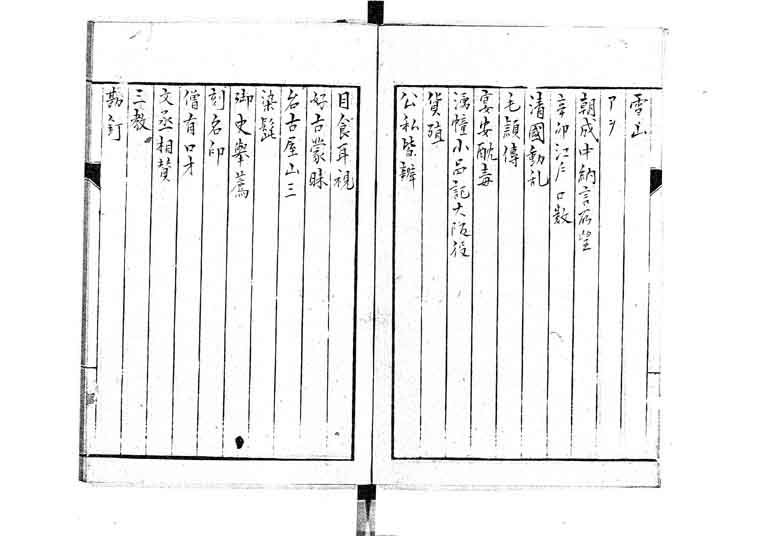 雪山
アヲ
朝成中納言所望
辛卯江戸口数
清國動乱
毛頴傳
宴安酖毒
涌幢小品記大阪役
貨殖
公私柴辨
目食耳視
好古蒙昧
名古屋山三
染髭
御史擧薦
刻名印
僧有口才
文丞相賛
三教
勘釘